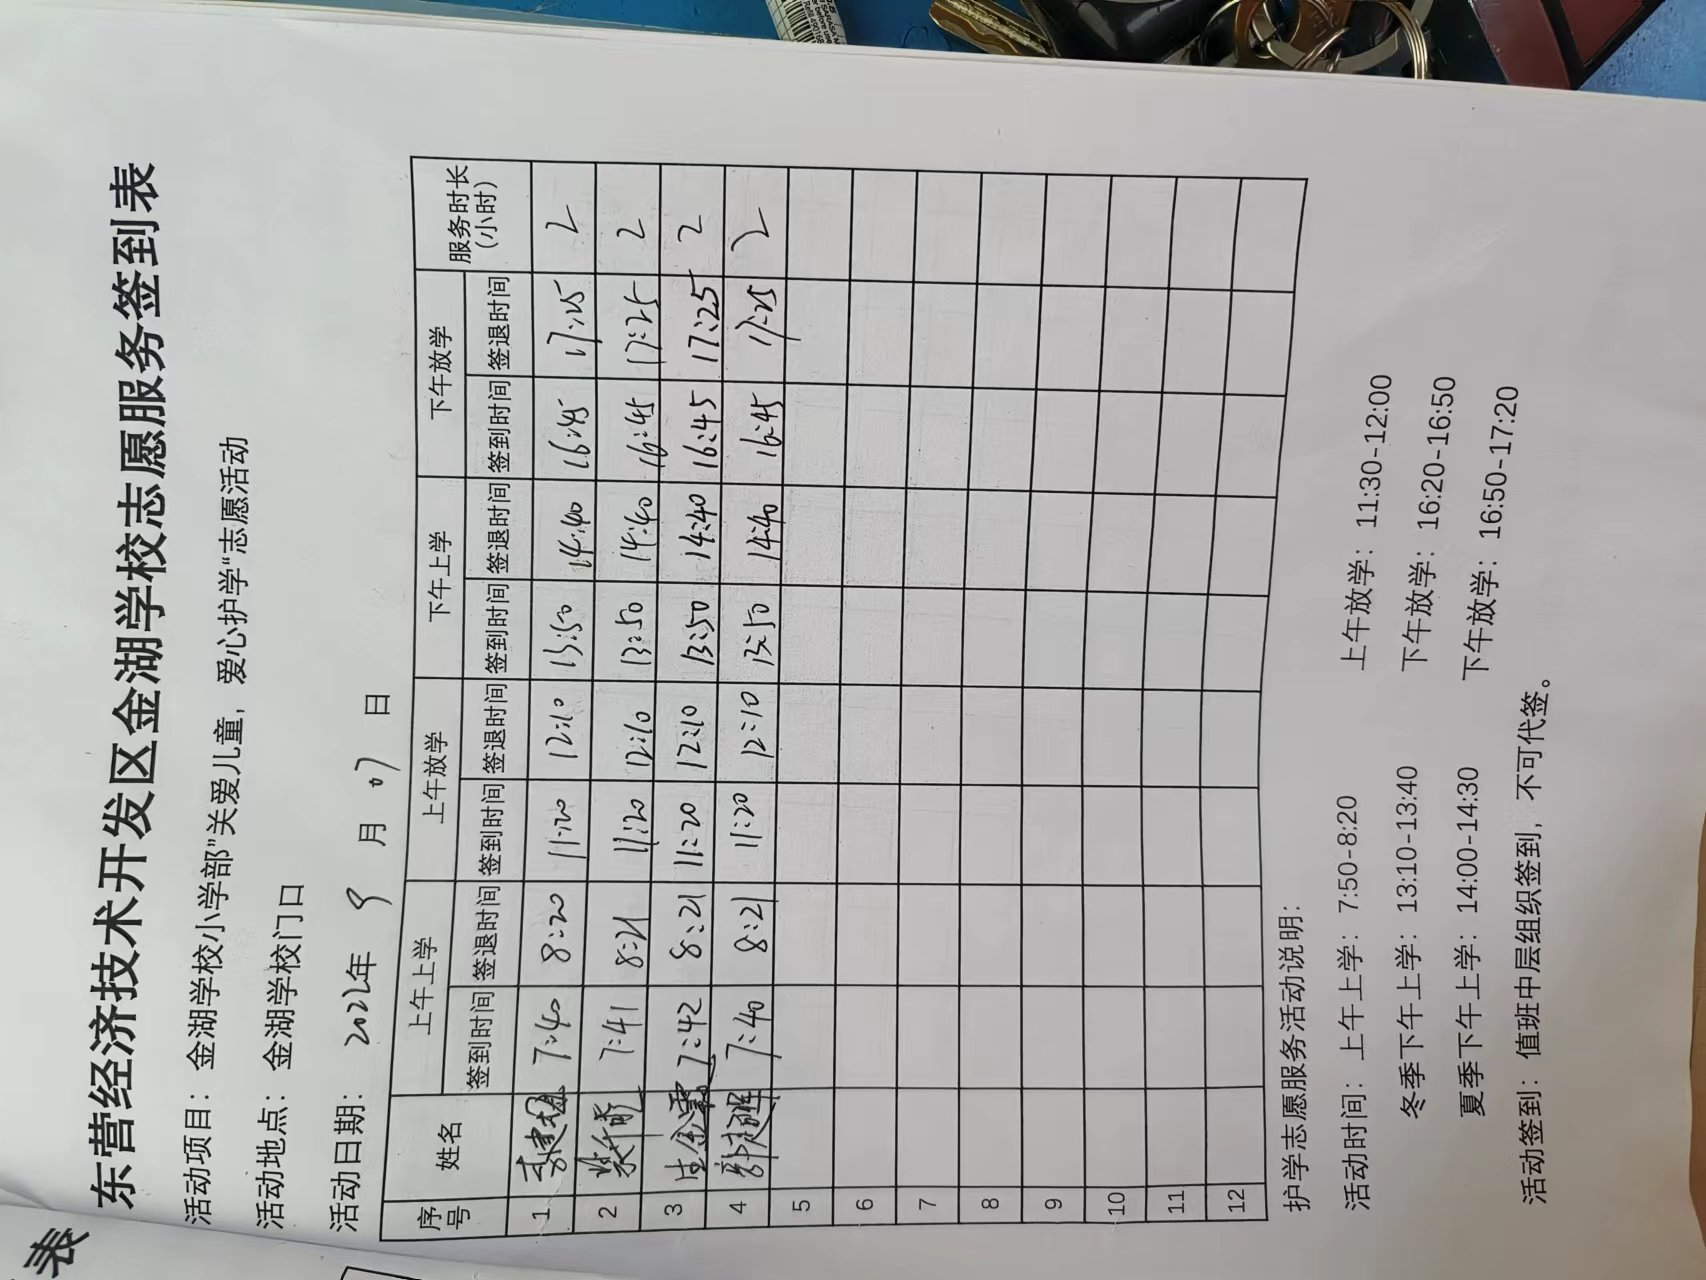 表
东营经济技术开发区金湖学校志愿服务签到表
活动项目：金湖学校小学部"关爱儿童，爱心护学"志愿活动
活动地点：金湖学校门口
活动日期：2022年 9 月 07 日
序号 姓名 上午上学 上午放学 下午上学 下午放学 服务时长（小时）
签到时间 签退时间 签到时间 签退时间 签到时间 签退时间 签到时间 签退时间
1 7:40 8:20 11:20 12:10 13:50 14:40 16:45 17:25 2
2 7:41 8:21 11:20 12:10 13:50 14:40 16:45 17:25 2
3 7:42 8:21 11:20 12:10 13:50 14:40 16:45 17:25 2
4 7:40 8:21 11:20 12:10 13:50 14:40 16:45 17:25 2
5
6
7
8
9
10
11
12
护学志愿服务活动说明：
活动时间：上午上学：7:50-8:20 上午放学：11:30-12:00
冬季下午上学：13:10-13:40 下午放学：16:20-16:50
夏季下午上学：14:00-14:30 下午放学：16:50-17:20
活动签到：值班中层组织签到，不可代签。